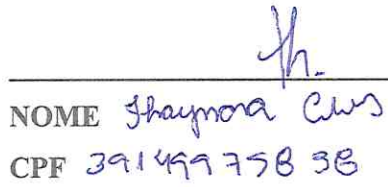 Th.
NOME Thaynora Alves
CPF 39149975838